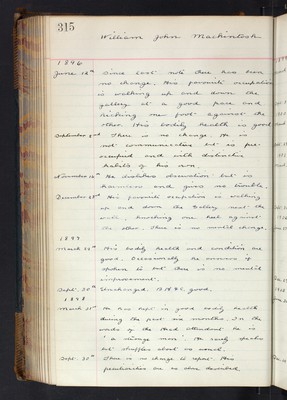 315
William John Mackintosh
1896
June 16th Since last note there has been
no change. His favourite occupation
is walking up and down the
gallery at a good pace and
kicking one foot against the
other. His bodily health is good
September 2nd There is no change. He is
not communicative but is pre-
occupied and with distinctive
habits of his own.
November He dislikes observation but is
harmless and gives no trouble.
December His favourite occupation is walking
up and down the gallery near the
wall, knocking one heel against
the other. There is no mental change.
1897
March His bodily health and condition are
good. Occasionally he answers if
spoken to but there is no mental
improvement.
Sept. 30th Unchanged. B.H. &c. good.
1898
March 31st Has kept in good bodily health
during the past six months. In the
words of the Head Attendant he is
"a strange man." He rarely speaks
but shuffles about as usual.
Sept. 30th There is no change to report. His
peculiarities are as above described.